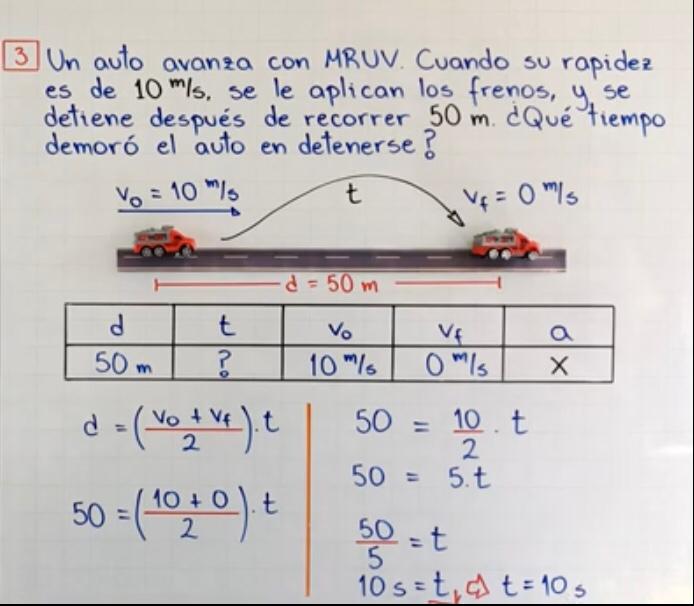 3 Un auto avanza con MRUV. Cuando su rapidez
es de 10 m/s, se le aplican los frenos, y se
detiene después de recorrer 50 m. ¿Qué tiempo
demoró el auto en detenerse?
V₀ = 10 m/s t Vf = 0 m/s
d = 50 m
d t V₀ Vf a
50 m ? 10 m/s 0 m/s X
d = (V₀ + Vf / 2) . t
50 = (10 + 0 / 2) . t
50 = 10/2 . t
50 = 5.t
50/5 = t
10 s = t ⇨ t = 10 s